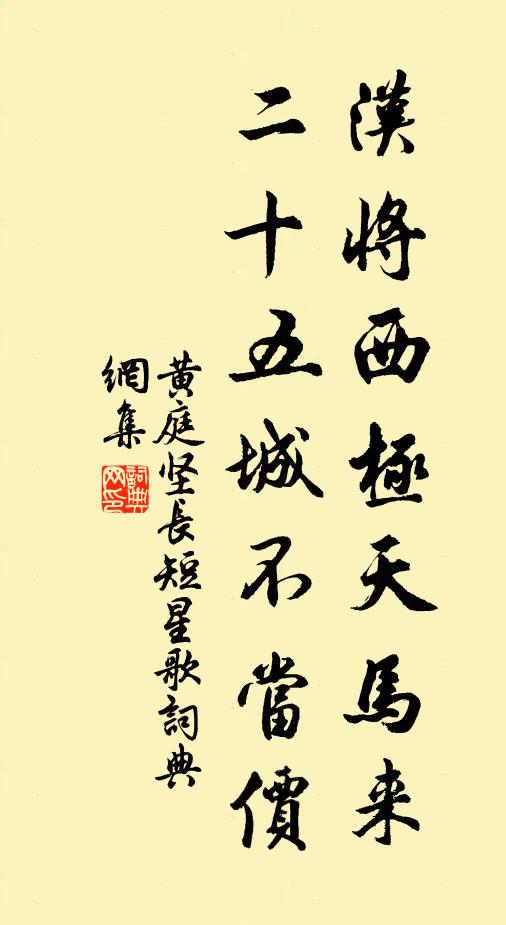 漢將西極天馬来
二十五城不當價
黄庭坚長短星歌詞典
網集
詞典
网印